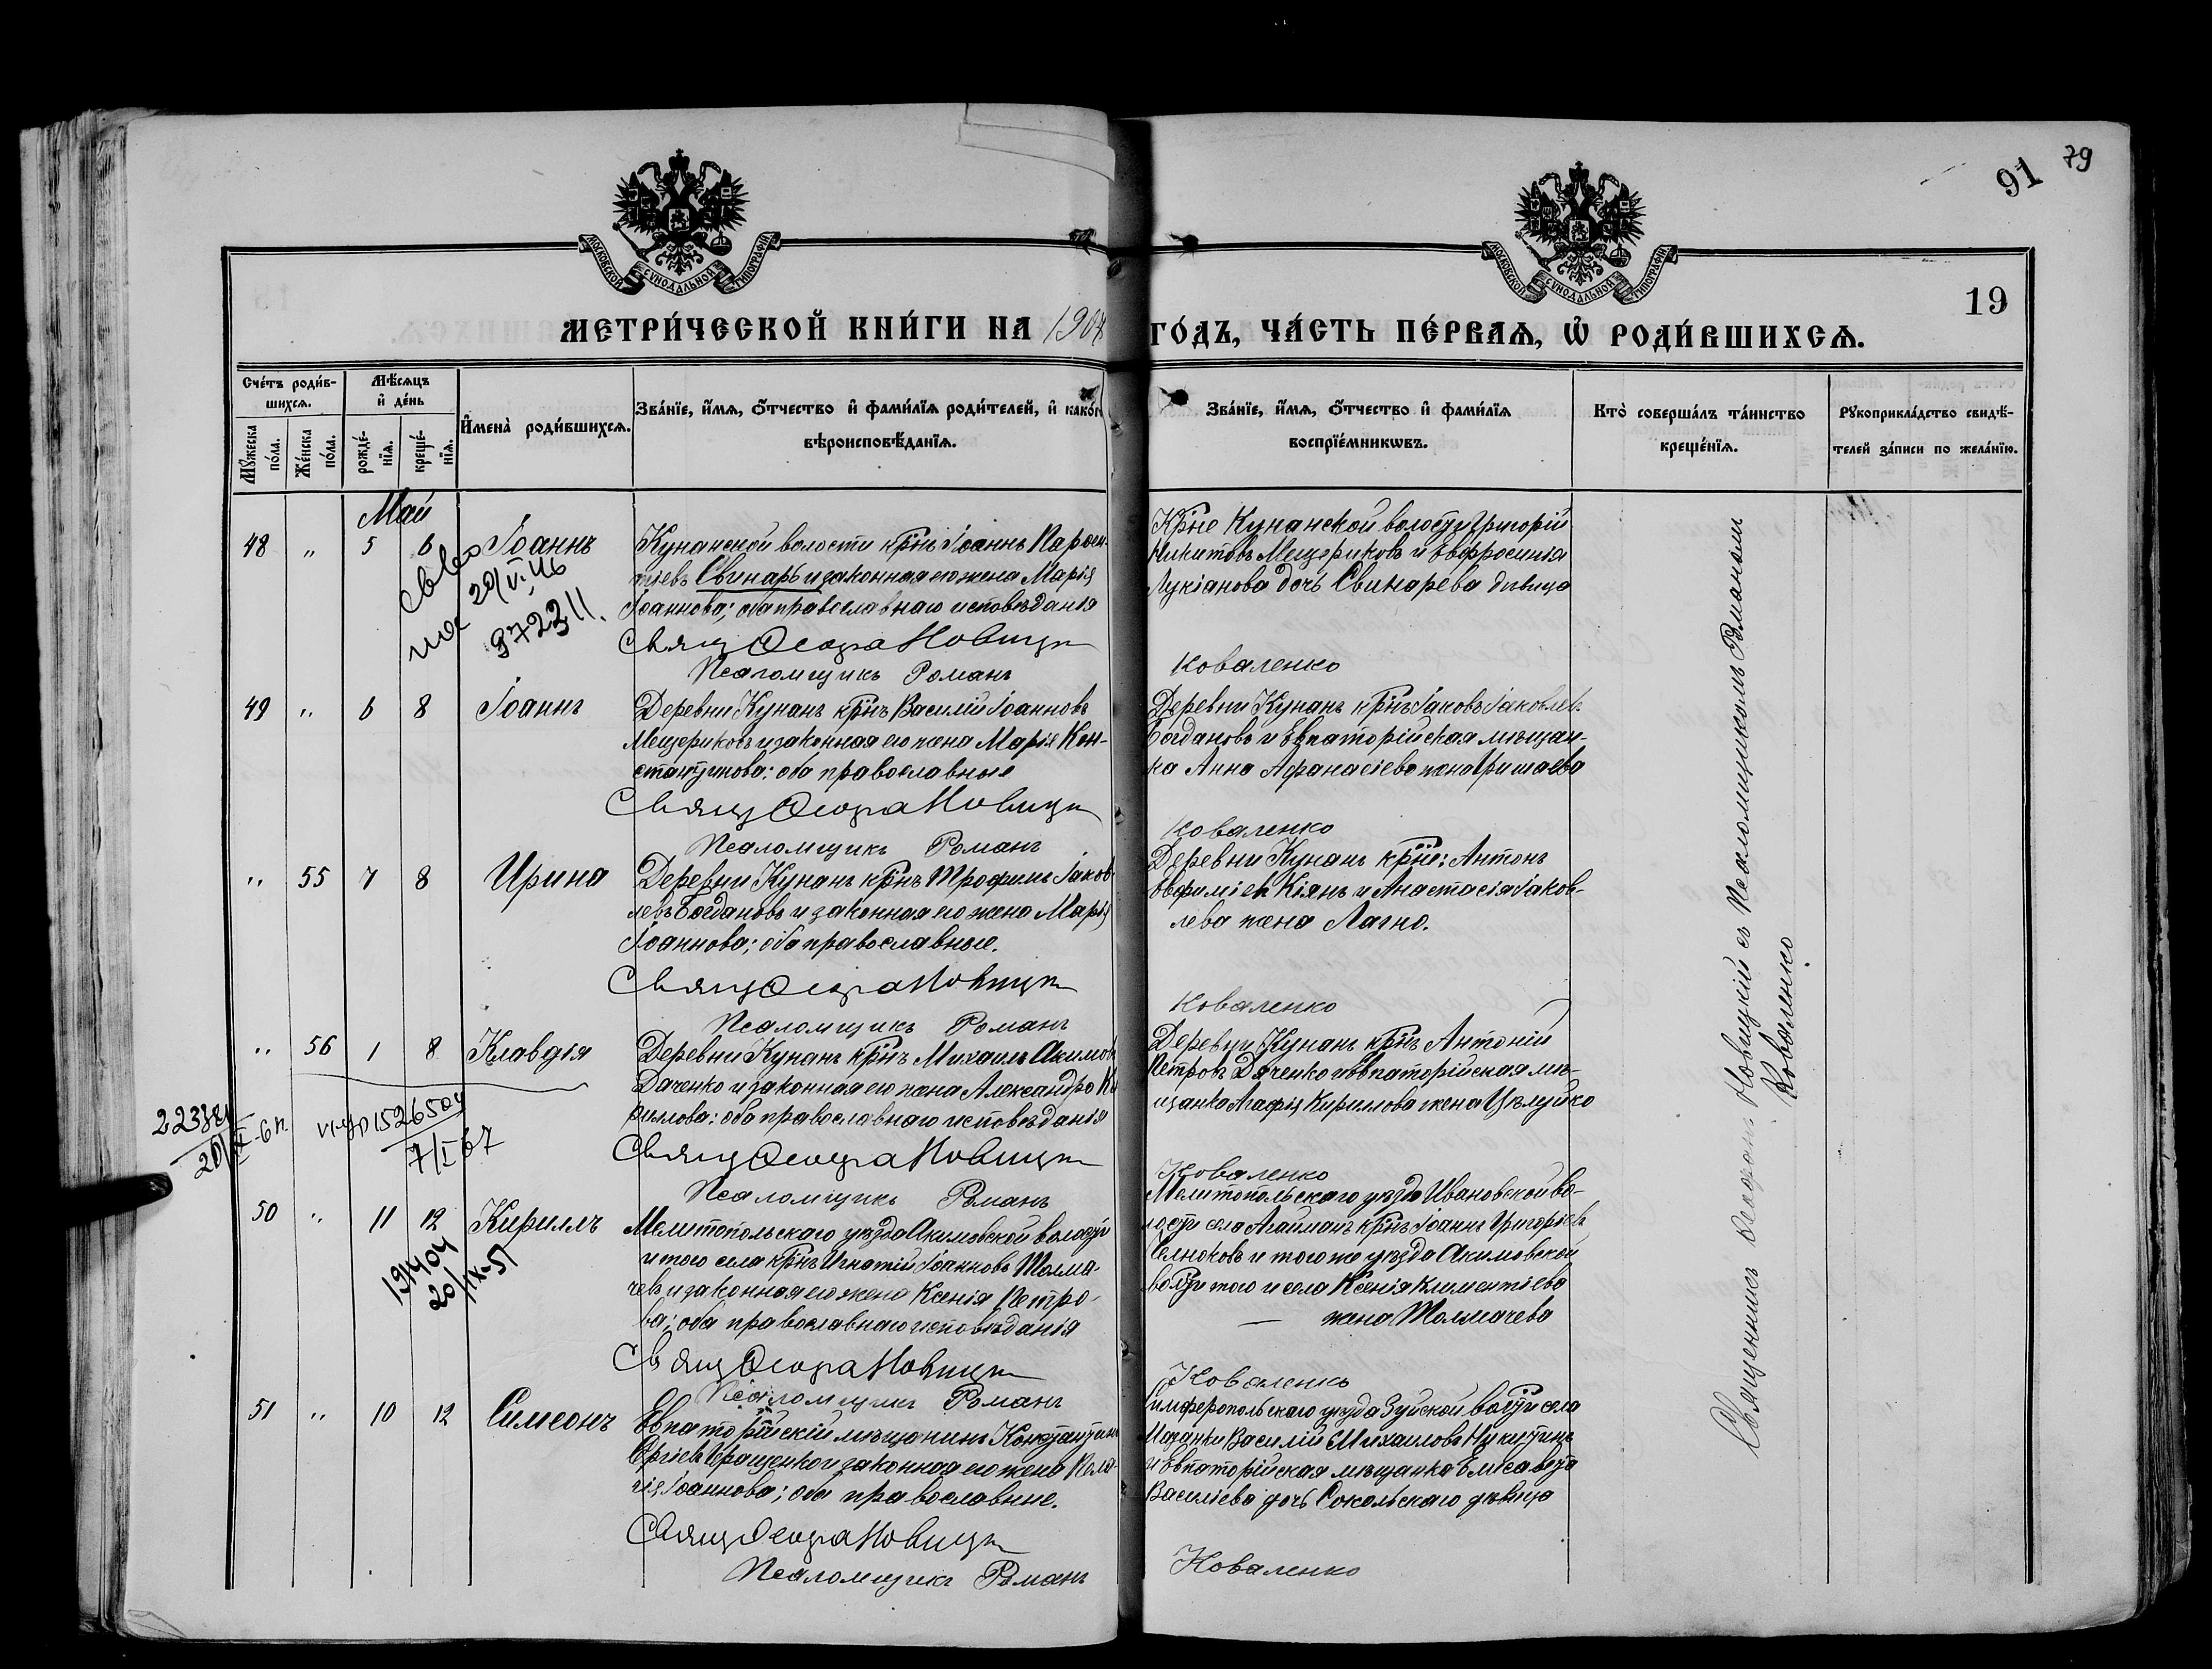 91 79
МОСКОВСКОЙ СУНОДАЛЬНОЙ ТИПОГРАФІИ
МОСКОВСКОЙ СУНОДАЛЬНОЙ ТИПОГРАФІИ
19
МЕТРИ́ЧЕСКОЙ КНИ́ГИ НА 1904 ГО́ДЪ, ЧА́СТЬ ПЕ́РВАѦ, Ѡ РОДИ́ВШИХСѦ.
Сче́тъ роди́в-
шихсѧ.
Мѣ́сѧцъ
и҆ де́нь
Мꙋ́жеска
по́ла.
Же́нска
по́ла.
рожде́-
нїѧ.
креще́-
нїѧ.
И҆мена̀ роди́вшихсѧ.
Зва́нїе, и҆́мѧ, ѻ҆́тчество и҆ фами́лїѧ роди́телей, и҆ како́гѡ
вѣроисповѣ́данїѧ.
Зва́нїе, и҆́мѧ, ѻ҆́тчество и҆ фами́лїѧ
воспрїе́мникѡвъ.
Кто̀ соверша́лъ та́инство
креще́нїѧ.
Рꙋкоприкла́дство свидѣ́-
телей за́писи по жела́нїю.
Май
48 " 5 6 Іоаннъ
20/VI 46
372311.
Кунанской волости крнъ Іоаннъ
Свинарь и законная его жена Марія
Іоаннова; оба православнаго исповѣданія
Свящ Новицк
Псаломщикъ Романъ
Крне Кунанской волости Григорій
Никитовъ Мещериковъ и Евфросинія
Лукіанова дочь Свинарева дѣвица
Коваленко
49 " 6 8 Іоаннъ
Деревни Кунанъ крнъ Василій Іоанновъ
Мещериковъ и законная его жена Марія Кон-
стантинова: оба православные
Свящ Новицк
Псаломщикъ Романъ
Деревни Кунанъ крнъ Іаковъ Іаковлев
Богдановъ и Евпаторійская мѣщан-
ка Анна Афанасіева жена Гришаева
Коваленко
" 55 7 8 Ирина
Деревни Кунанъ крнъ Трофимъ Іаков-
левъ Богдановъ и законная его жена Марія
Іоаннова; оба православные.
Свящ Новицк
Псаломщикъ Романъ
Деревни Кунанъ крне: Антонъ
Евфиміевъ Кіянъ и Анастасія Іаков-
лева жена Лагно.
Коваленко
" 56 1 8 Клавдія
7/I 67
Деревни Кунанъ крнъ Михаилъ Акимовъ
Даченко и законная его жена Александра Ки
риллова: оба православнаго исповѣданія
Свящ Новицк
Псаломщикъ Романъ
Деревни Кунанъ крнъ Антоній
Петровъ Даченко и Евпаторійская мѣ-
щанка Агафія Кириллова жена Цѣлуйко
Коваленко
50 " 11 12 Кириллъ
191404
20/IX-51
Мелитопольскаго уѣзда Акимовской волости
и того села крнъ Игнатій Іоанновъ Толма-
чевъ и законная его жена Ксенія Петро-
ва; оба православнаго исповѣданія
Свящ Новицк
Псаломщикъ Романъ
Мелитопольскаго уѣзда Ивановской во-
лости села Агайманъ крнъ Іоаннъ Григоріевъ
и того же уѣзда Акимовской
волсти того и села Ксенія Климентіева
— жена Толмачева
Коваленко
51 " 10 12 Симеонъ
Евпаторійскій мѣщанинъ Константинъ
Сергіевъ Геращенко и законная его жена Пела-
гія Іоаннова; оба православные.
Свящ Новицк
Псаломщикъ Романъ
Симферопольскаго уѣзда Зуйской волсти села
Мазанки Василій Михаиловъ Никитинъ
и Евпаторійская мѣщанка Елисавета
Василіева дочь Сокольскаго дѣвица
Коваленко
Священникъ Новицкій съ Псаломщикомъ Романомъ
Коваленко